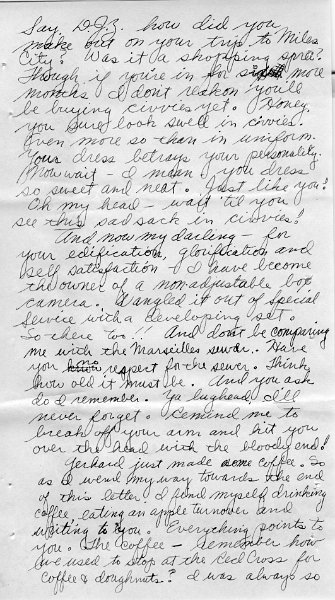 Say D.J.Z. how did you
make out on your trip to Miles
City? Was it a shopping spree?
Though if you're in for six more
months I don't reckon you'll
be buying civvies yet. Honey
you sure look swell in civvies.
Even more so than in uniform.
Your dress betrays your personality.
Now wait - I mean you dress
so sweet and neat. Just like you!
Oh my head - wait 'til you
see this sad sack in civvies!
And now my darling - for
your edification, glorification and
self satisfaction - I have become
the owner of a non adjustable box
camera. Wangled it out of Special
Service with a developing set.
So there too!! And don't be comparing
me with the Marseilles sewer. Have
you no respect for the sewer. Think
how old it must be. And you ask
do I remember. Ya lughead I'll
never forget. Remind me to
break off your arm and hit you
over the head with the bloody end!
Gerhard just made some coffee. So
as I wend my way towards the end
of this letter I find myself drinking
coffee eating an apple turnover and
writing to you. Everything points to
you. The coffee - remember how
we used to stop at the Red Cross for
coffee & doughnuts? I was always so